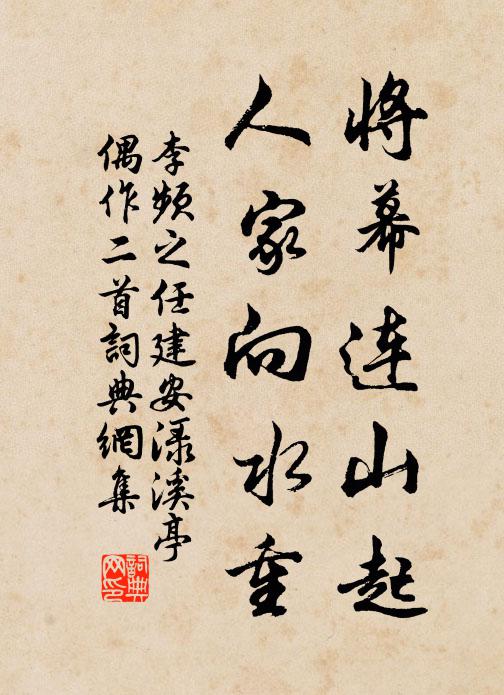 將幕連山起
人家向水重
李頻之任建安渌溪亭
偶作二首詞典網集
詞典
网印